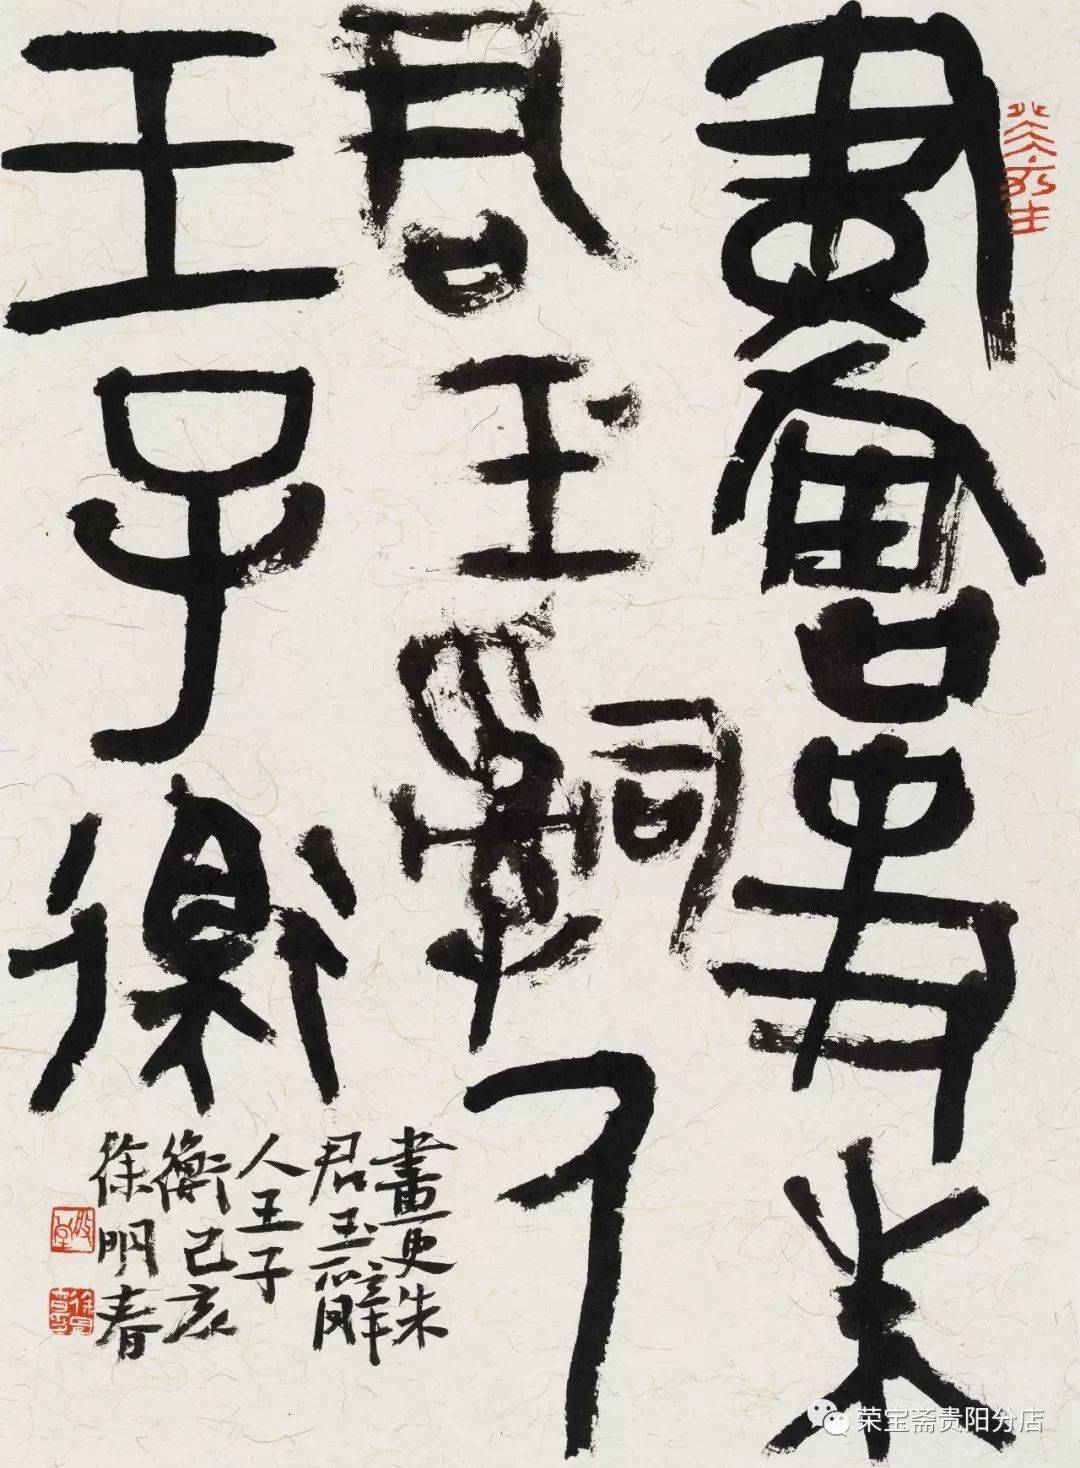 畫史朱
君玉辭人
王子衡
畫史朱
君玉辭
人王子
衡己亥
徐明春
荣宝斋贵阳分店